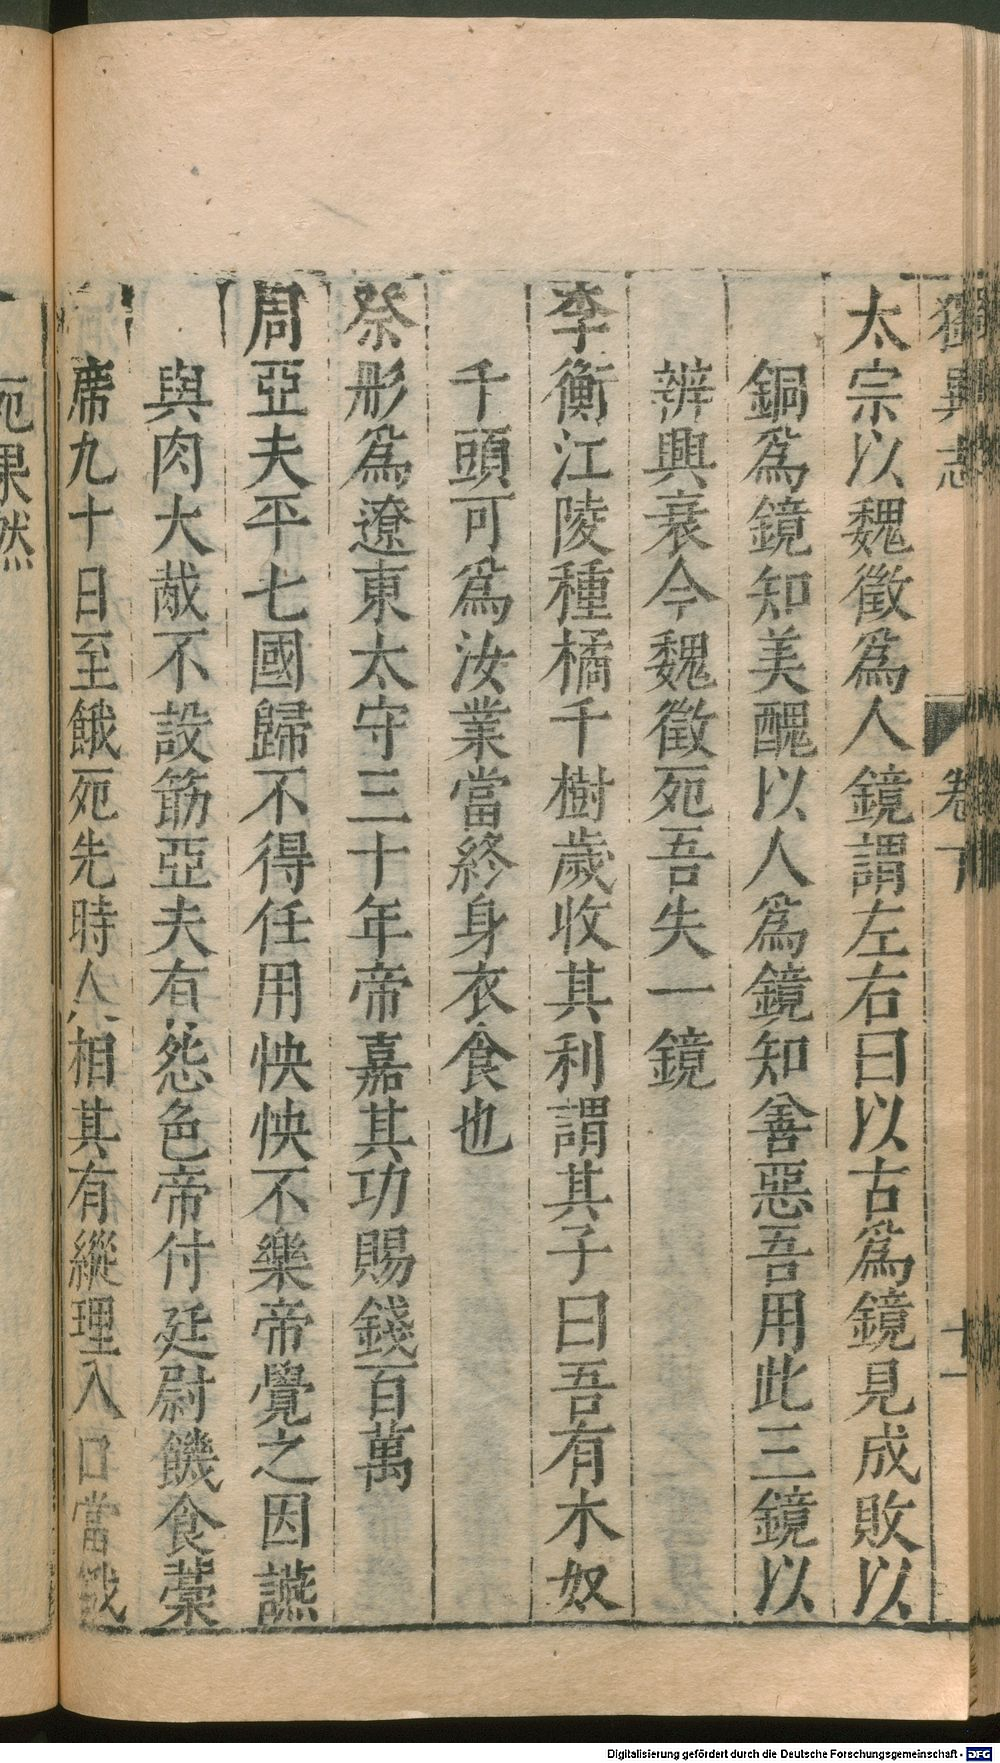 獨異志 卷下 十一
太宗以魏徵爲人鏡謂左右曰以古爲鏡見成敗以
銅爲鏡知美醜以人爲鏡知善惡吾用此三鏡以
辨興衰今魏徵死吾失一鏡
李衡江陵種橘千樹歲收其利謂其子曰吾有木奴
千頭可爲汝業當終身衣食也
祭肜爲遼東太守三十年帝嘉其功賜錢百萬
周亞夫平七國歸不得任用怏怏不樂帝覺之因讌
與肉大胾不設筯亞夫有怨色帝付廷尉饑食藁
席九十日至餓死先時人相其有縱理入口當餓
死果然
Digitalisierung gefördert durch die Deutsche Forschungsgemeinschaft - DFG